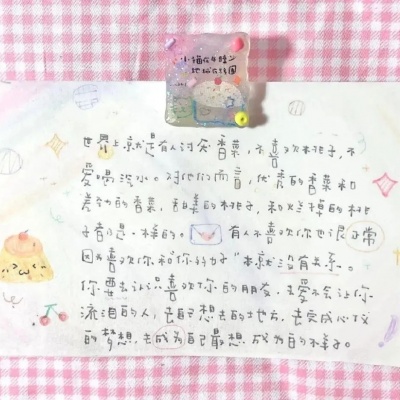 小猫在午睡
地球在转圈
世界上就是有人讨厌香菜，不喜欢桃子，不
爱喝汽水。对他们而言，优秀的香菜和
差劲的香菜，甜美的桃子，和烂掉的桃
子都是一样的。有人不喜欢你也很正常
因为喜欢你和你好好"本就没有关系"。
你要去认品喜欢你的朋友，去爱不会让你
流泪的人，去自己想去的地方，去完成心仪
的梦想，去成为自己最想成为的样子。